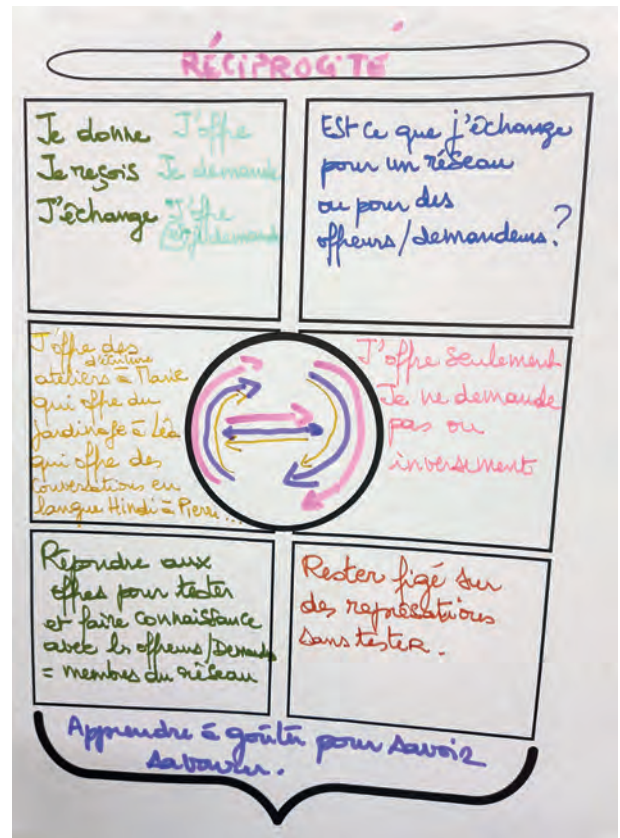 RÉCIPROCITÉ
Je donne
Je reçois
J'échange
J'offre
Je demande
J'offre
et je demande
Est ce que j'échange
pour un réseau
ou pour des
offreurs/demandeurs?
J'offre des
d'écriture
ateliers à Marie
qui offre du
jardinage à Léa
qui offre des
conversations en
langue Hindi à Pierre...
J'offre seulement
Je ne demande
pas ou
inversement
Répondre aux
offres pour tester
et faire connaissance
avec les offreurs/Demandeurs
= membres du réseau
Rester figé sur
des représations
sans tester.
Apprendre à goûter pour savoir
savourer.